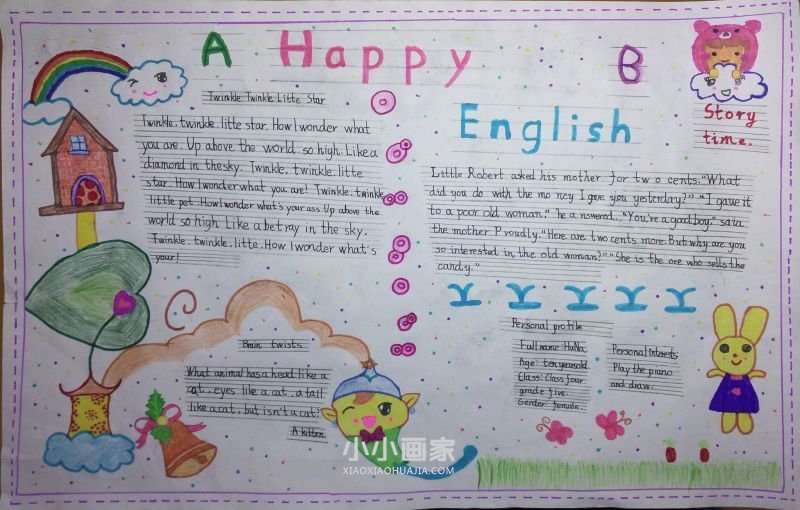 A Happy B
English
Story
time.
Twinkle Twinkle Litte Star
Twinkle. twinkle. litte star. How I wonder what
you are. Up above the world so high. Like a
diamond in the sky. Twinkle. twinkle. litte
star. How I wonder what you are! Twinkle. twinkle
little pet. How I wonder what's your ass Up above the
world so high Like a betray in the sky.
Twinkle. twinkle. litte. How I wonder what's
your!
Little Robert asked his mother for two cents. "What
did you do with the money I gave you yesterday?" "I gave it
to a poor old woman." he answered. "You're a good boy." said
the mother Proudly. "Here are two cents more. But why are you
so interested in the old woman?" "She is the ore who sells the
candy."
Brain twists
What animal has a head like a
cat. eyes like a cat. a tail
like a cat. but isn't a cat?
A kitten.
Personal profile
Full name: HuNa.
Age: ten years old.
Class: Class four
grade five.
Gender: female.
Personal Interests:
Play the piano
and draw.
小小画家
XIAOXIAOHUAJIA.COM